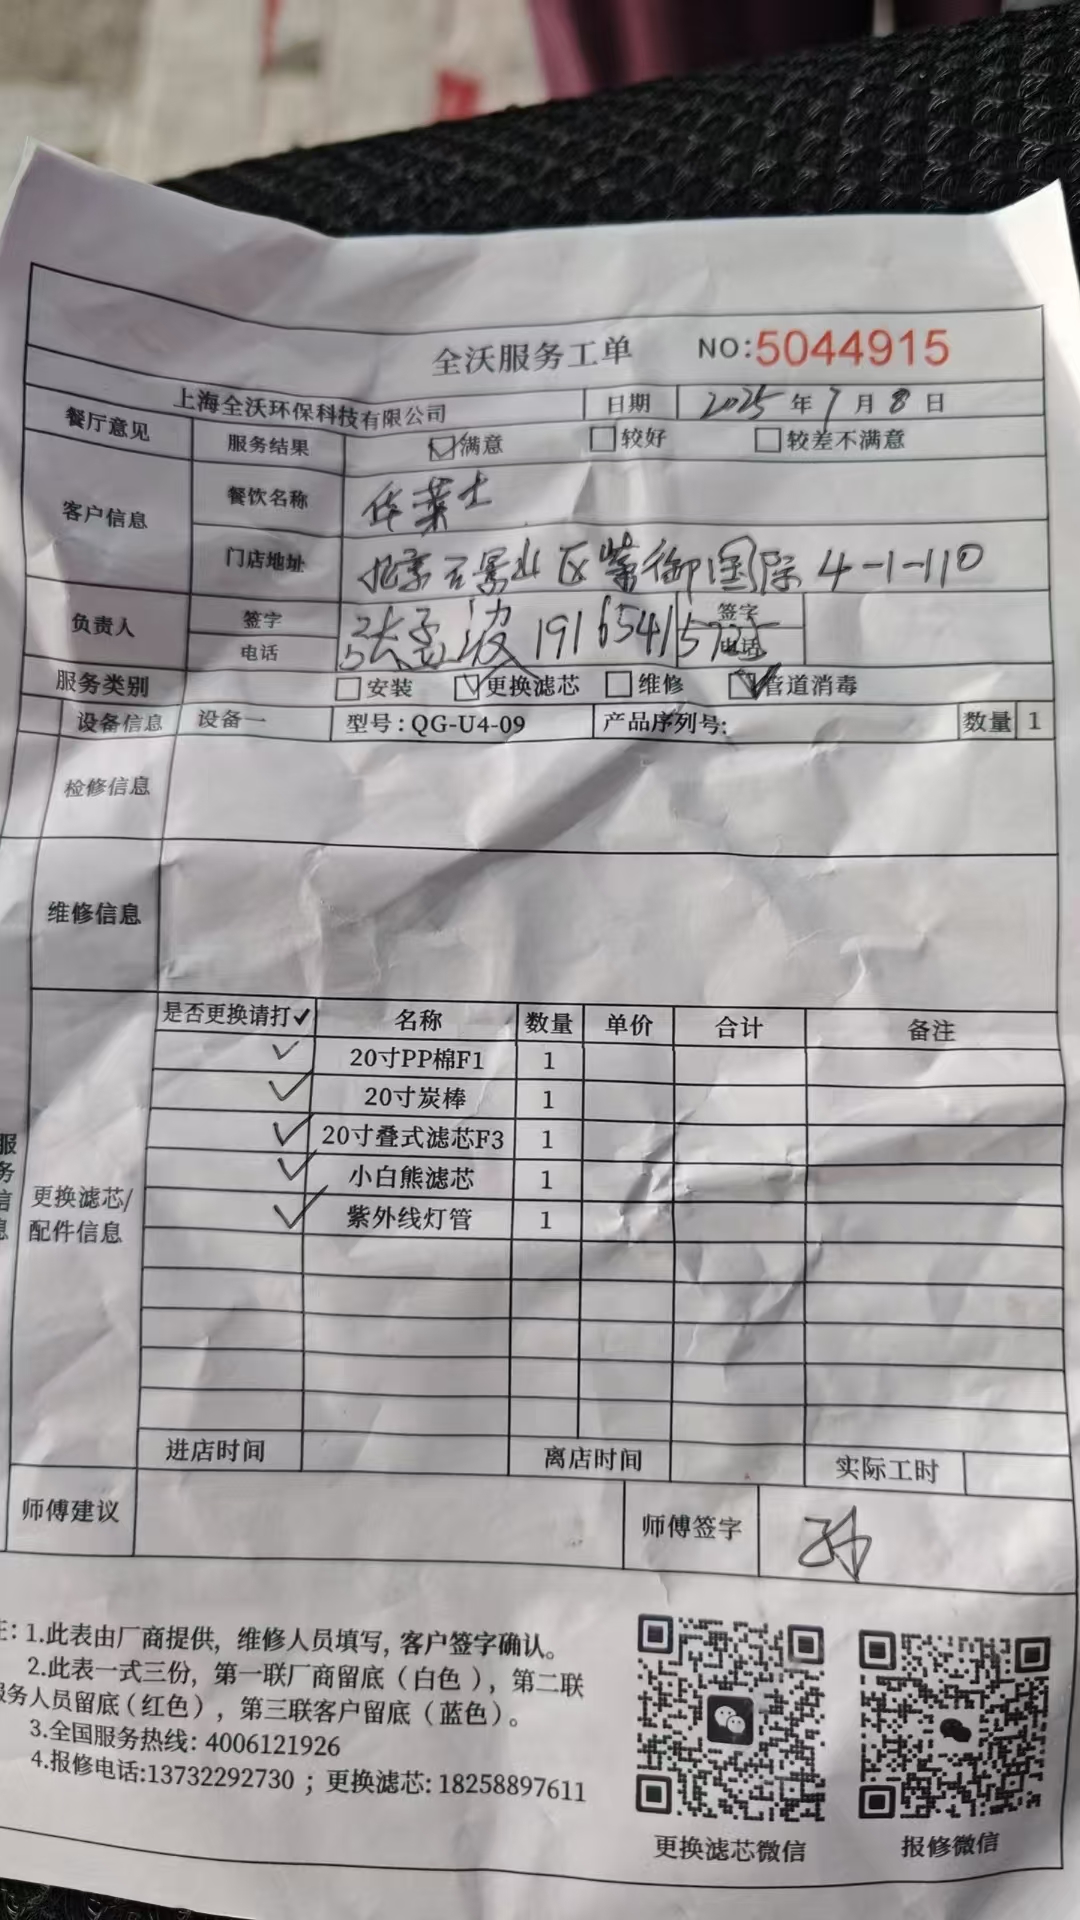 全沃服务工单 NO:5044915
上海全沃环保科技有限公司 日期 2025年7月8日
餐厅意见 服务结果 满意 较好 较差不满意
客户信息 餐饮名称 华莱士
门店地址 北京石景山区紫御国际4-1-110
负责人 签字 张孟波 签字
电话 19165415725 电话
服务类别 安装 更换滤芯 维修 管道消毒
设备信息 设备一 型号:QG-U4-09 产品序列号: 数量 1
检修信息
维修信息
服务信息
更换滤芯/配件信息
是否更换请打✓ 名称 数量 单价 合计 备注
✓ 20寸PP棉F1 1
✓ 20寸炭棒 1
✓ 20寸叠式滤芯F3 1
✓ 小白熊滤芯 1
✓ 紫外线灯管 1
进店时间 离店时间 实际工时
师傅建议 师傅签字 孙
注:1.此表由厂商提供,维修人员填写,客户签字确认。
2.此表一式三份,第一联厂商留底(白色),第二联
服务人员留底(红色),第三联客户留底(蓝色)。
3.全国服务热线:4006121926
4.报修电话:13732292730;更换滤芯:18258897611
更换滤芯微信 报修微信